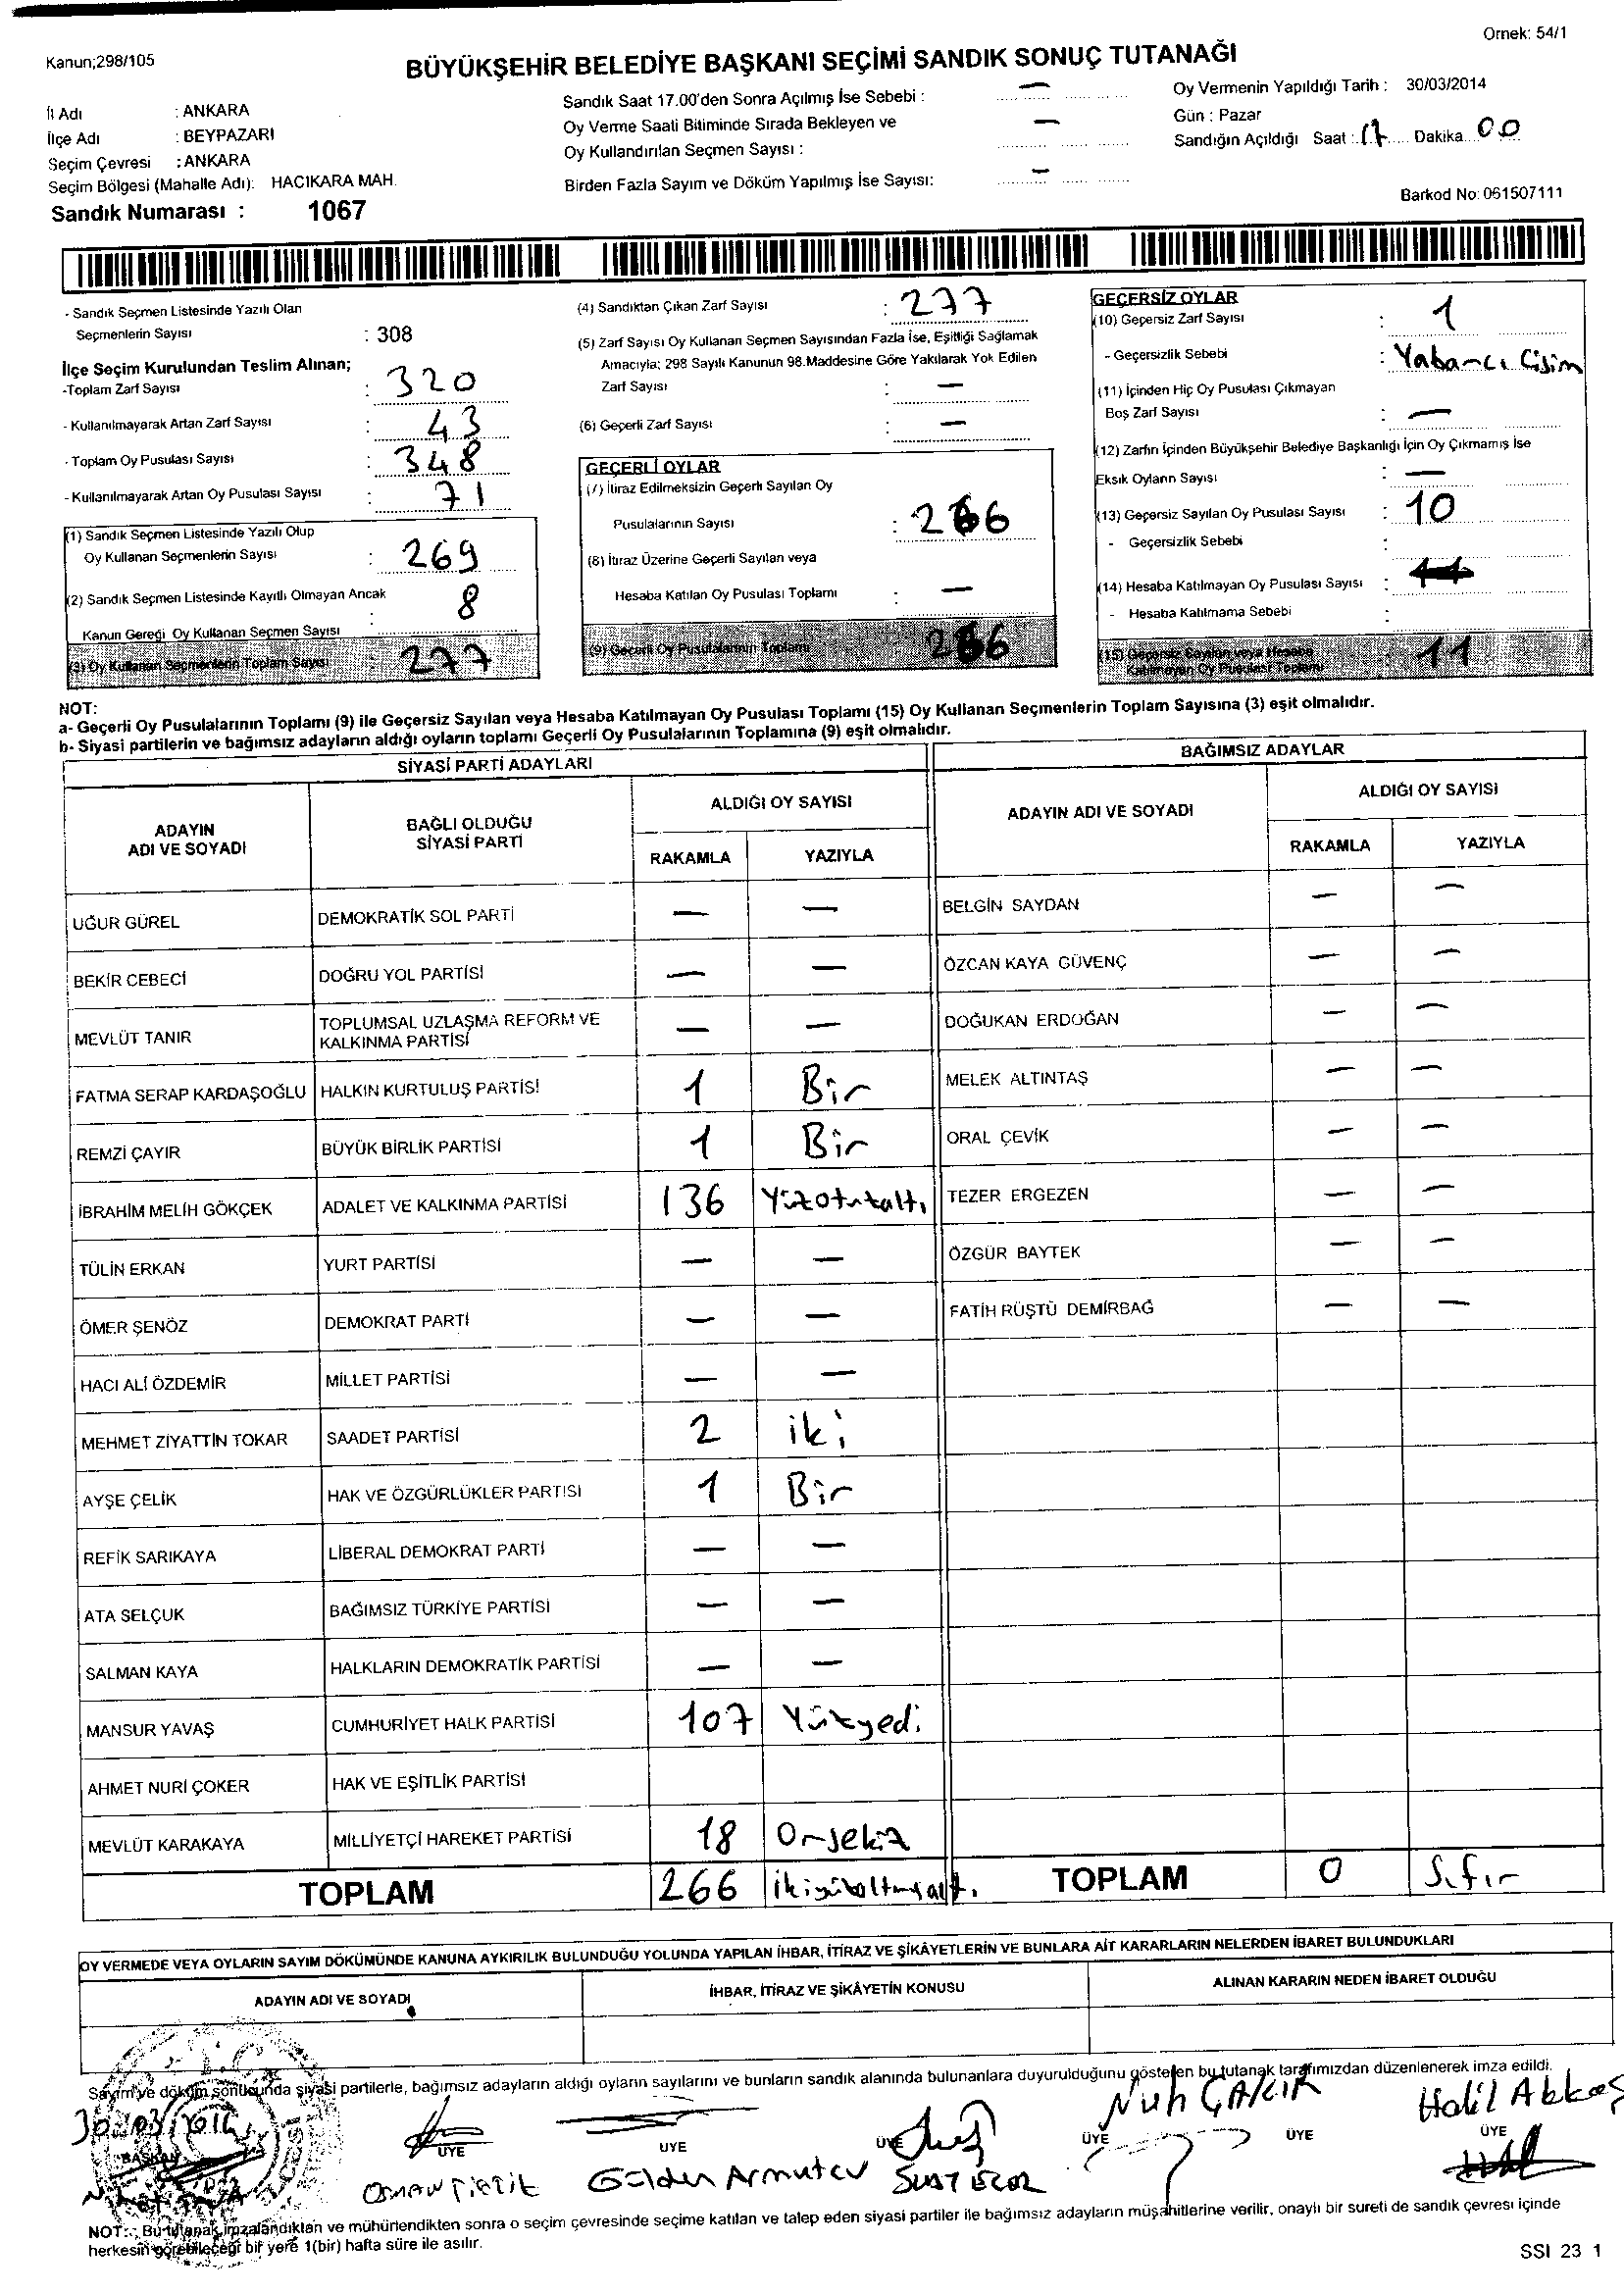 Ornek: 54/1
Kanun;298/105
BÜYÜKŞEHİR BELEDİYE BAŞKANI SEÇİMİ SANDIK SONUÇ TUTANAĞI
İl Adı : ANKARA
İlçe Adı : BEYPAZARI
Seçim Çevresi : ANKARA
Seçim Bölgesi (Mahalle Adı): HACIKARA MAH.
Sandık Numarası : 1067
Sandık Saat 17.00'den Sonra Açılmış İse Sebebi : —
Oy Verme Saati Bitiminde Sırada Bekleyen ve —
Oy Kullandırılan Seçmen Sayısı :
Birden Fazla Sayım ve Döküm Yapılmış İse Sayısı: —
Oy Vermenin Yapıldığı Tarih : 30/03/2014
Gün : Pazar
Sandığın Açıldığı Saat : 17 Dakika 00
Barkod No: 061507111
- Sandık Seçmen Listesinde Yazılı Olan
Seçmenlerin Sayısı : 308
İlçe Seçim Kurulundan Teslim Alınan;
-Toplam Zarf Sayısı : 320
- Kullanılmayarak Artan Zarf Sayısı : 43
- Toplam Oy Pusulası Sayısı : 348
- Kullanılmayarak Artan Oy Pusulası Sayısı : 71
(1) Sandık Seçmen Listesinde Yazılı Olup
Oy Kullanan Seçmenlerin Sayısı : 269
(2) Sandık Seçmen Listesinde Kayıtlı Olmayan Ancak
Kanun Gereği Oy Kullanan Seçmen Sayısı : 8
(3) Oy Kullanan Seçmenlerin Toplam Sayısı 277
(4) Sandıktan Çıkan Zarf Sayısı : 277
(5) Zarf Sayısı Oy Kullanan Seçmen Sayısından Fazla İse, Eşitliği Sağlamak
Amacıyla; 298 Sayılı Kanunun 98.Maddesine Göre Yakılarak Yok Edilen
Zarf Sayısı : —
(6) Geçerli Zarf Sayısı : —
GEÇERLİ OYLAR
(7) İtiraz Edilmeksizin Geçerli Sayılan Oy
Pusulalarının Sayısı : 266
(8) İtiraz Üzerine Geçerli Sayılan veya
Hesaba Katılan Oy Pusulası Toplamı : —
(9) Geçerli Oy Pusulalarının Toplamı 266
GEÇERSİZ OYLAR
(10) Geçersiz Zarf Sayısı : 1
- Geçersizlik Sebebi : Yabancı Cisim
(11) İçinden Hiç Oy Pusulası Çıkmayan
Boş Zarf Sayısı : —
(12) Zarfın İçinden Büyükşehir Belediye Başkanlığı İçin Oy Çıkmamış İse
Eksik Oyların Sayısı : —
(13) Geçersiz Sayılan Oy Pusulası Sayısı : 10
- Geçersizlik Sebebi :
(14) Hesaba Katılmayan Oy Pusulası Sayısı :
- Hesaba Katılmama Sebebi :
(15) Geçersiz Sayılan veya Hesaba
Katılmayan Oy Pusulası Toplamı 11
NOT:
a- Geçerli Oy Pusulalarının Toplamı (9) ile Geçersiz Sayılan veya Hesaba Katılmayan Oy Pusulası Toplamı (15) Oy Kullanan Seçmenlerin Toplam Sayısına (3) eşit olmalıdır.
b- Siyasi partilerin ve bağımsız adayların aldığı oyların toplamı Geçerli Oy Pusulalarının Toplamına (9) eşit olmalıdır.
SİYASİ PARTİ ADAYLARI
ADAYIN ADI VE SOYADI BAĞLI OLDUĞU SİYASİ PARTİ ALDIĞI OY SAYISI
RAKAMLA YAZIYLA
UĞUR GÜREL DEMOKRATİK SOL PARTİ — —
BEKİR CEBECİ DOĞRU YOL PARTİSİ — —
MEVLÜT TANIR TOPLUMSAL UZLAŞMA REFORM VE KALKINMA PARTİSİ — —
FATMA SERAP KARDAŞOĞLU HALKIN KURTULUŞ PARTİSİ 1 Bir
REMZİ ÇAYIR BÜYÜK BİRLİK PARTİSİ 1 Bir
İBRAHİM MELİH GÖKÇEK ADALET VE KALKINMA PARTİSİ 136 Yüzotuzaltı
TÜLİN ERKAN YURT PARTİSİ — —
ÖMER ŞENÖZ DEMOKRAT PARTİ — —
HACI ALİ ÖZDEMİR MİLLET PARTİSİ — —
MEHMET ZİYATTİN TOKAR SAADET PARTİSİ 2 iki
AYŞE ÇELİK HAK VE ÖZGÜRLÜKLER PARTİSİ 1 Bir
REFİK SARIKAYA LİBERAL DEMOKRAT PARTİ — —
ATA SELÇUK BAĞIMSIZ TÜRKİYE PARTİSİ — —
SALMAN KAYA HALKLARIN DEMOKRATİK PARTİSİ — —
MANSUR YAVAŞ CUMHURİYET HALK PARTİSİ 107 Yüzyedi
AHMET NURİ ÇOKER HAK VE EŞİTLİK PARTİSİ
MEVLÜT KARAKAYA MİLLİYETÇİ HAREKET PARTİSİ 18 Onsekiz
TOPLAM 266 ikiyüzaltmışaltı
BAĞIMSIZ ADAYLAR
ADAYIN ADI VE SOYADI ALDIĞI OY SAYISI
RAKAMLA YAZIYLA
BELGİN SAYDAN — —
ÖZCAN KAYA GÜVENÇ — —
DOĞUKAN ERDOĞAN — —
MELEK ALTINTAŞ — —
ORAL ÇEVİK — —
TEZER ERGEZEN — —
ÖZGÜR BAYTEK — —
FATİH RÜŞTÜ DEMİRBAĞ — —
TOPLAM 0 Sıfır
OY VERMEDE VEYA OYLARIN SAYIM DÖKÜMÜNDE KANUNA AYKIRILIK BULUNDUĞU YOLUNDA YAPILAN İHBAR, İTİRAZ VE ŞİKÂYETLERİN VE BUNLARA AİT KARARLARIN NELERDEN İBARET BULUNDUKLARI
ADAYIN ADI VE SOYADI İHBAR, İTİRAZ VE ŞİKÂYETİN KONUSU ALINAN KARARIN NEDEN İBARET OLDUĞU
Sayım ve döküm sonucunda siyasi partilerle, bağımsız adayların aldığı oyların sayılarını ve bunların sandık alanında bulunanlara duyurulduğunu gösteren bu tutanak tarafımızdan düzenlenerek imza edildi.
30/03/2014 Nuh ÇAKIR Halil Akkaş
BAŞKAN ÜYE ÜYE ÜYE ÜYE ÜYE ÜYE
Gülden Armutcu
NOT: Bu tutanak imzalandıktan ve mühürlendikten sonra o seçim çevresinde seçime katılan ve talep eden siyasi partiler ile bağımsız adayların müşahitlerine verilir, onaylı bir sureti de sandık çevresi içinde
herkesin görebileceği bir yere 1(bir) hafta süre ile asılır.
SSI 23 1